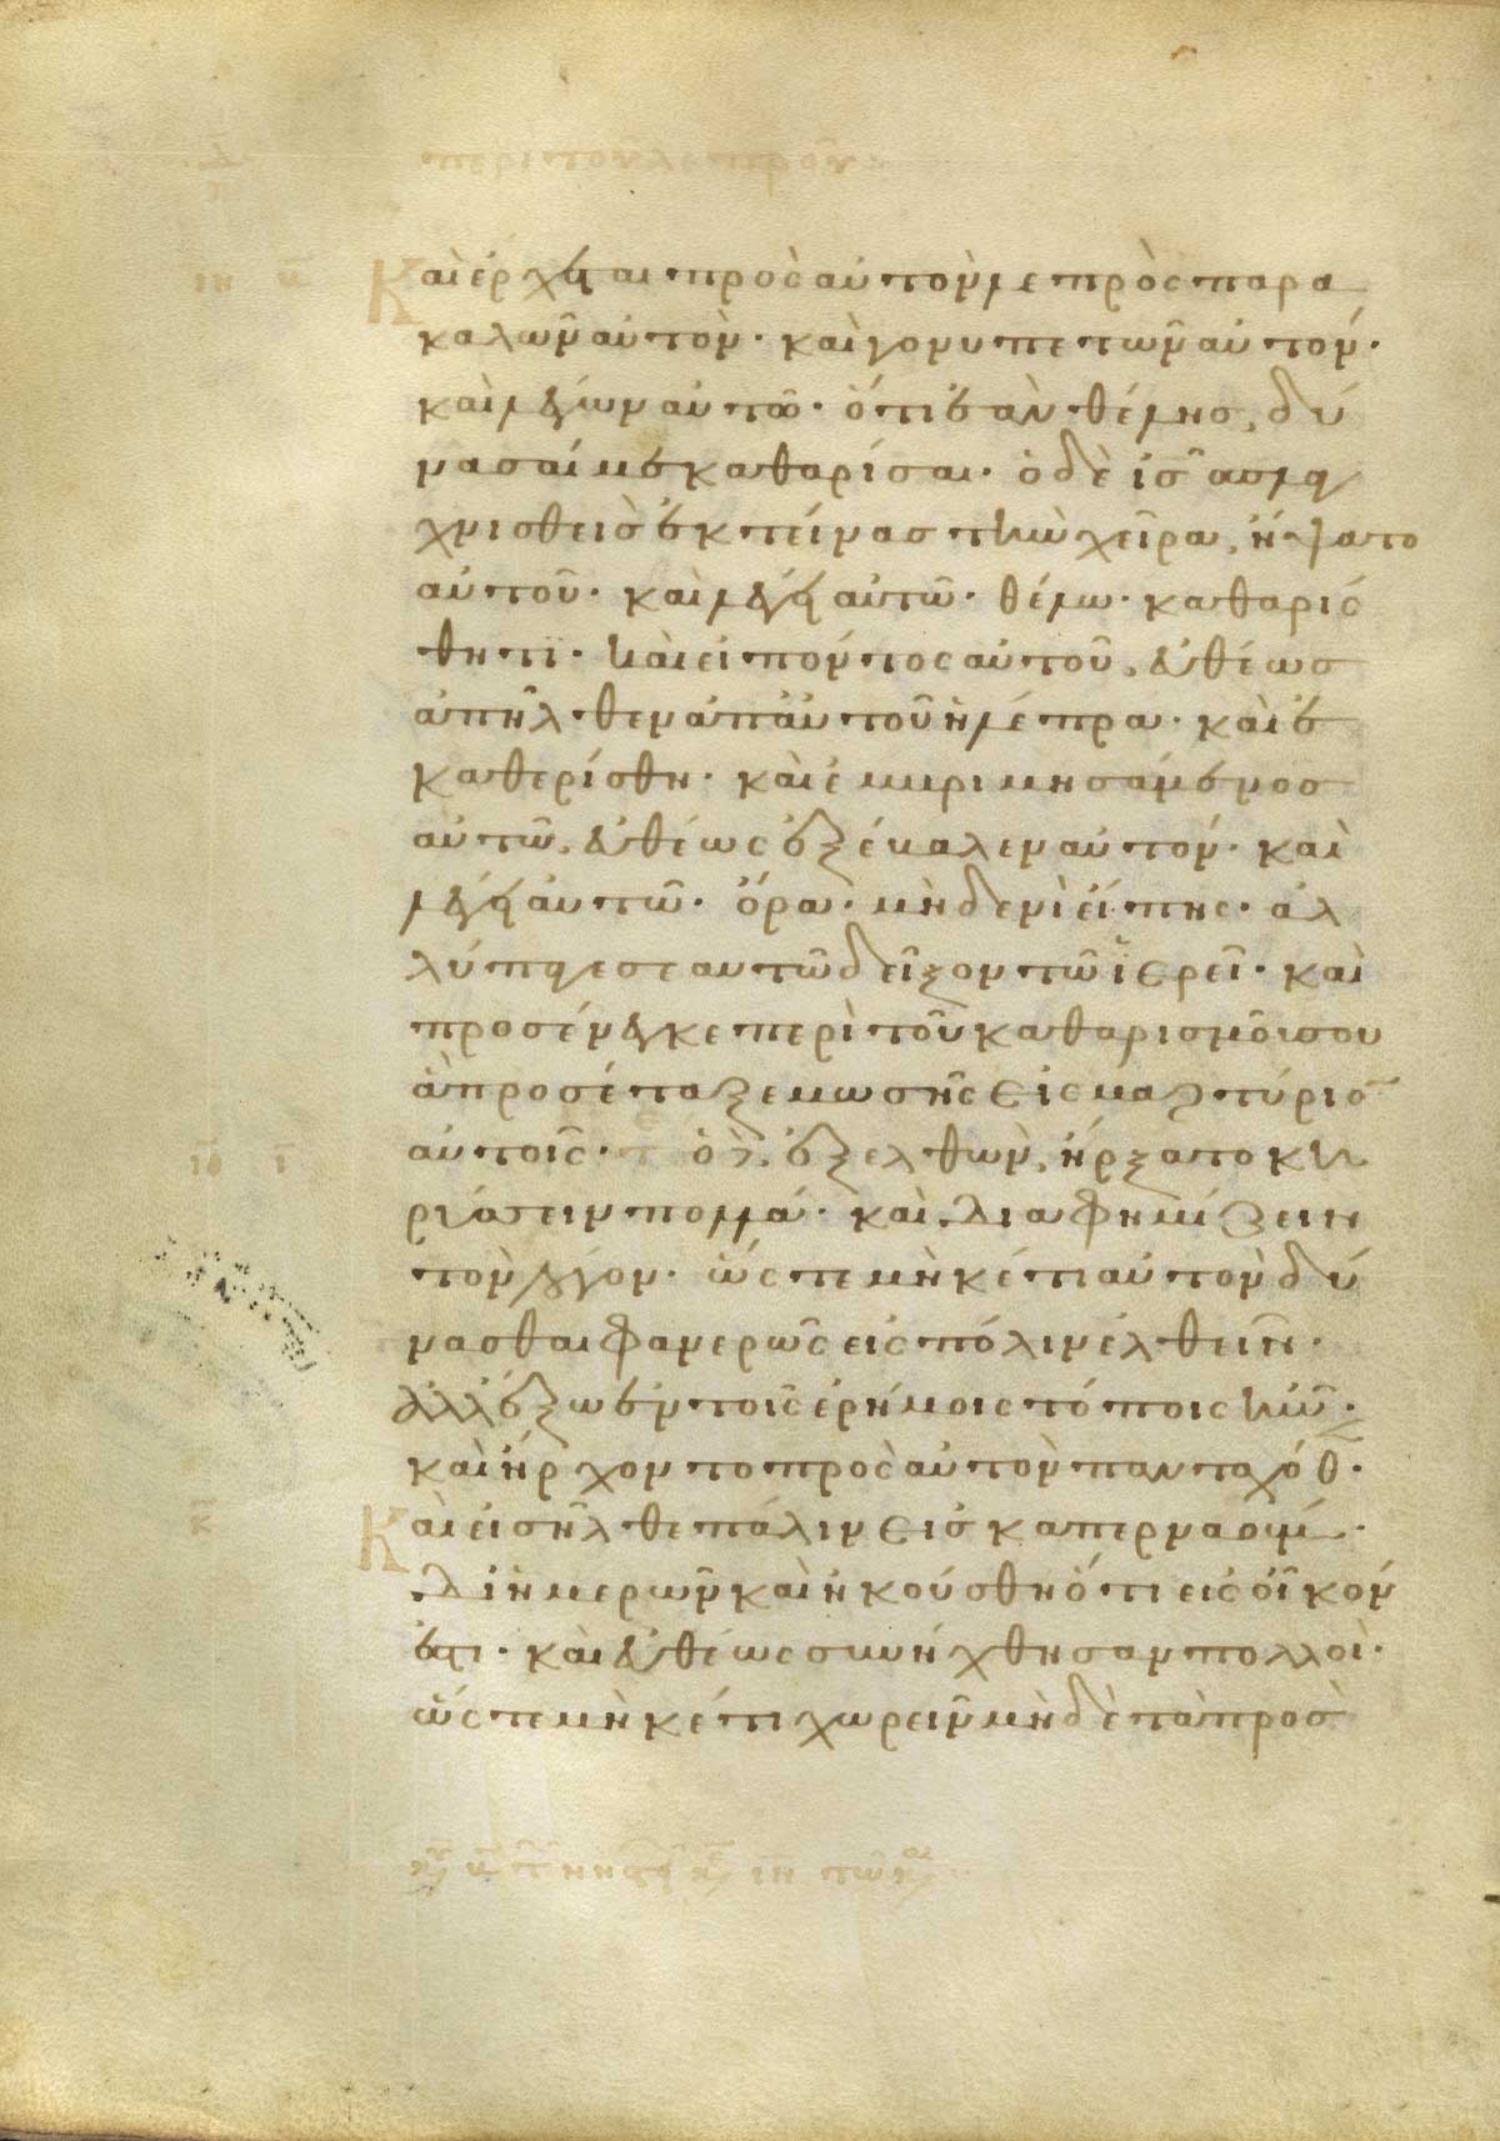 περὶ τοῦ λεπροῦ
ιη η Καὶ ἔρχεται πρὸς αὐτὸν λεπρὸς παρα
καλῶν αὐτὸν· καὶ γονυπετῶν αὐτόν·
καὶ λέγων αὐτῶ· ὅτι ἐὰν θέλησ, δύ
νασαί με καθαρίσαι· ὁ δὲ ισ σπλαγ
χνισθεὶσ ἐκτείνας τὴν χεῖρα, ἥψατο
αὐτοῦ· καὶ λέγει αὐτῶ· θέλω· καθαρίσ
θητι· καὶ εἰπόντος αὐτοῦ, εὐθέωσ
ἀπῆλθεν ἀπ' αὐτοῦ ἡ λέπρα· καὶ ἐ
καθερίσθη· καὶ ἐμβριμησάμενοσ
αὐτῶ, εὐθέως ἐξέβαλεν αὐτόν· καὶ
λέγει αὐτῶ· ὅρα· μηδενὶ εἴπης· ἀλ
λ' ὕπαγε σεαυτῶ δεῖξον τῶ ἱερεῖ· καὶ
προσένεγκε περὶ τοῦ καθαρισμοῦ σου
ἃ προσέταξε μωσῆς εἰς μαρτύριο
αὐτοῖς·
ιθ ι ὁ δ, ἐξελθὼν, ἤρξατο κη
ρύσσειν πολλά· καὶ διαφημίζειν
τὸν λόγον· ὥς τε μηκέτι αὐτὸν δύ
νασθαι φανερῶς εἰς πόλιν ἐλθεῖν·
ἀλλ' ἔξω ἐν τοῖς ἐρήμοις τόποις ἦν·
καὶ ἤρχοντο πρὸς αὐτὸν πανταχόθ·
κ Καὶ εἰσῆλθε πάλιν εἰσ καπερναούμ·
δι' ἡμερῶν καὶ ἠκούσθη ὅτι εἰς οἶκόν
ἐστι· καὶ εὐθέως συνήχθησαν πολλοὶ·
ὥς τε μηκέτι χωρεῖν μὴ δὲ τὰ πρὸσ